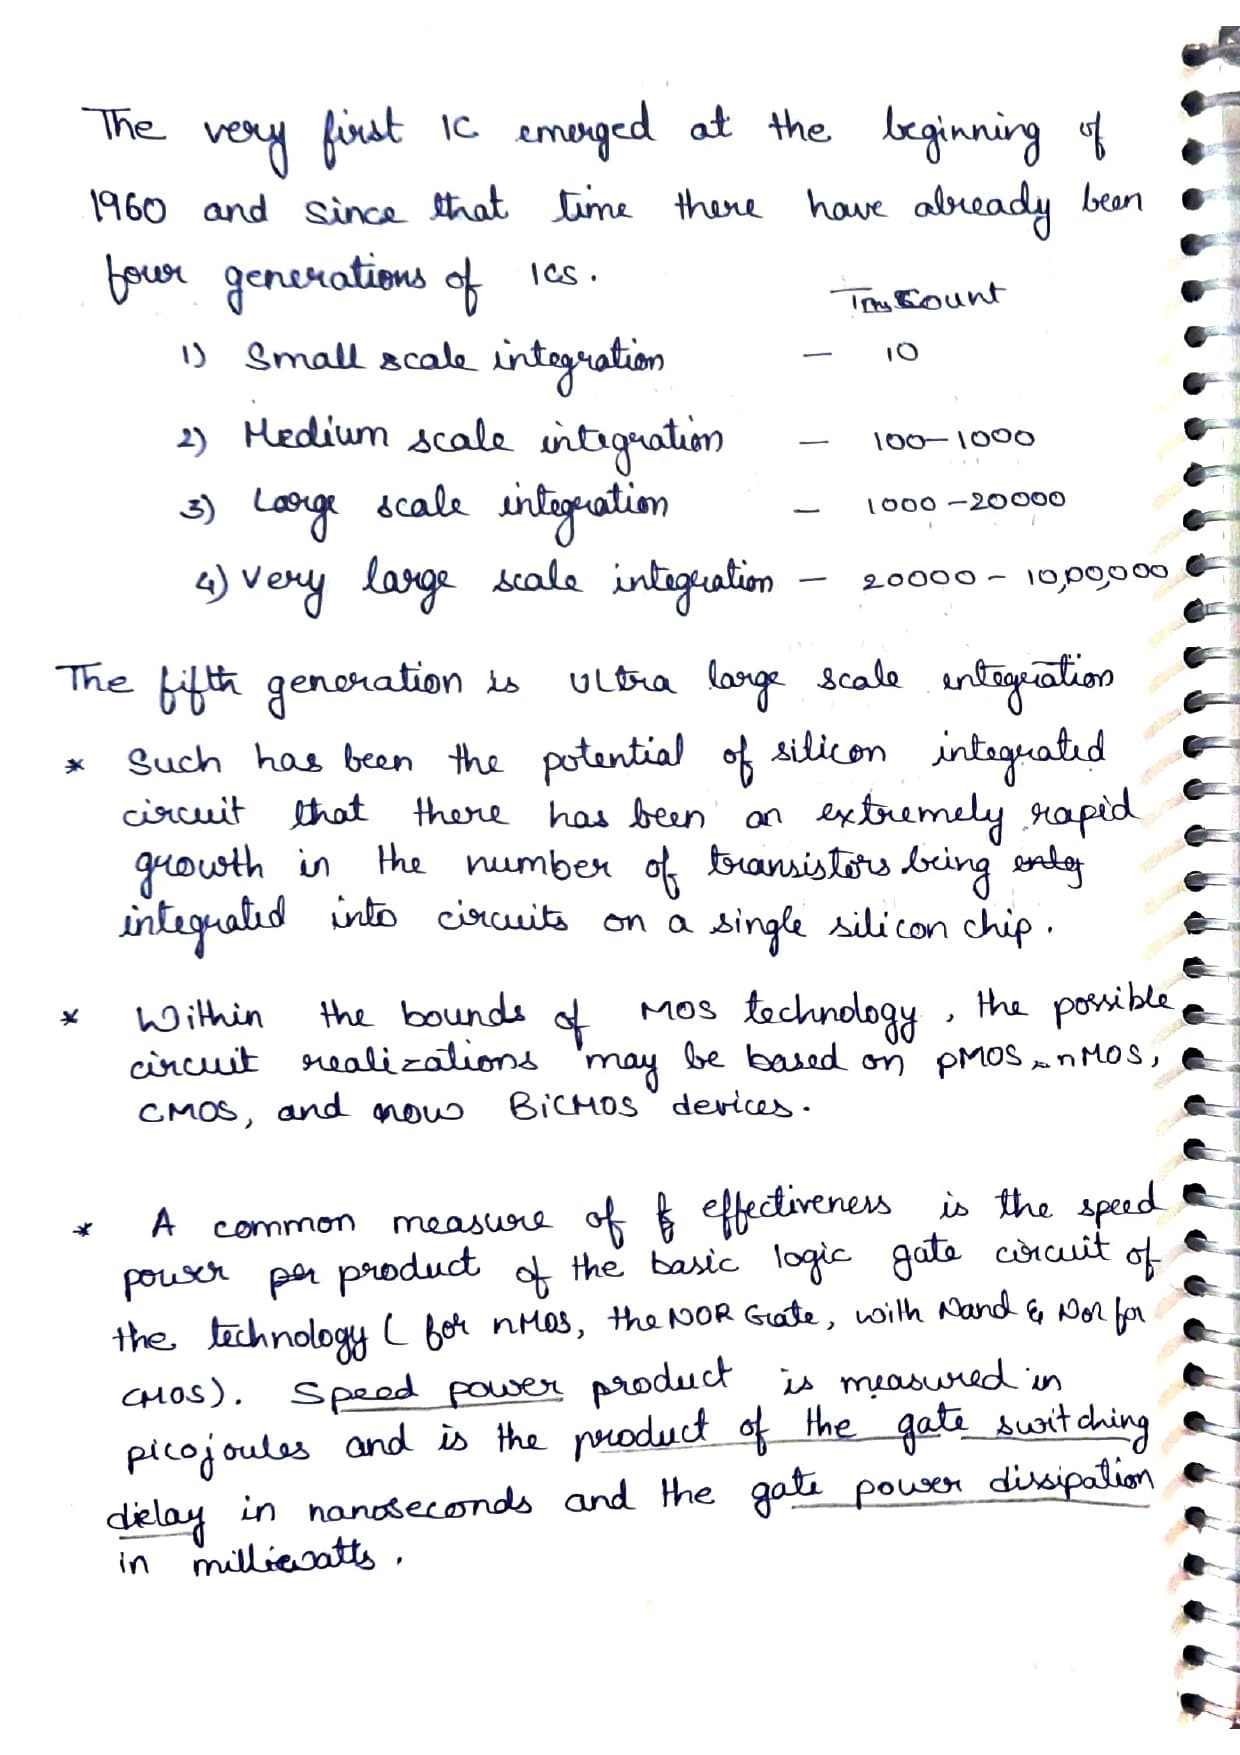 The very first IC emerged at the beginning of
1960 and since that time there have already been
four generations of ICs.
Count
1) Small scale integration — 10
2) Medium scale integration — 100-1000
3) Large scale integration — 1000-20000
4) Very large scale integration — 20000 - 10,00,000
The fifth generation is Ultra large scale integration
* Such has been the potential of silicon integrated
circuit that there has been an extremely rapid
growth in the number of transistors being
integrated into circuits on a single silicon chip.
* Within the bounds of MOS technology, the possible
circuit realizations may be based on pMOS, nMOS,
CMOS, and now BiCMOS devices.
* A common measure of effectiveness is the speed
power product of the basic logic gate circuit of
the technology (for nMOS, the NOR Gate, with Nand & Nor for
CMOS). Speed power product is measured in
picojoules and is the product of the gate switching
delay in nanoseconds and the gate power dissipation
in milliwatts.